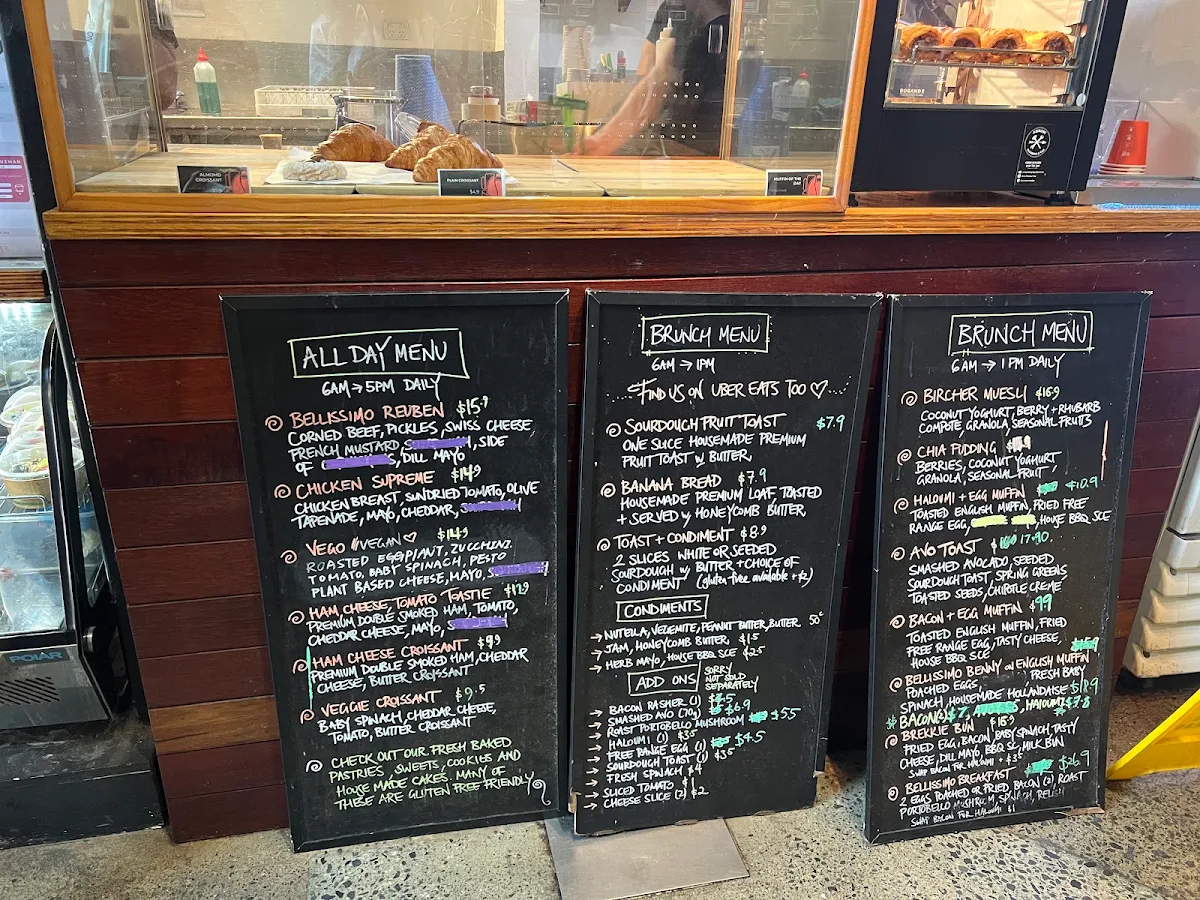 ALMOND CROISSANT
PLAIN CROISSANT
$4.9
MUFFIN OF THE DAY
ROBANDS
POLAR
ALL DAY MENU
6AM → 5PM DAILY
BELLISSIMO REUBEN $15.9
CORNED BEEF, PICKLES, SWISS CHEESE
FRENCH MUSTARD, SIDE
OF DILL MAYO
CHICKEN SUPREME $14.9
CHICKEN BREAST, SUNDRIED TOMATO, OLIVE
TAPENADE, MAYO, CHEDDAR,
VEGO //VEGAN♡ $14.9
ROASTED EGGPLANT, ZUCCHINI
TOMATO, BABY SPINACH, PESTO
PLANT BASED CHEESE, MAYO,
HAM, CHEESE, TOMATO TOASTIE $12.9
PREMIUM DOUBLE SMOKED HAM, TOMATO,
CHEDDAR CHEESE, MAYO,
HAM CHEESE CROISSANT $9.9
PREMIUM DOUBLE SMOKED HAM, CHEDDAR
CHEESE, BUTTER CROISSANT
VEGGIE CROISSANT $9.5
BABY SPINACH, CHEDDAR CHEESE,
TOMATO, BUTTER CROISSANT
CHECK OUT OUR FRESH BAKED
PASTRIES, SWEETS, COOKIES AND
HOUSE MADE CAKES. MANY OF
THESE ARE GLUTEN FREE FRIENDLY
BRUNCH MENU
6AM → 1PM
FIND US ON UBER EATS TOO ♡
SOURDOUGH FRUIT TOAST $7.9
ONE SLICE HOUSEMADE PREMIUM
FRUIT TOAST w BUTTER,
BANANA BREAD $7.9
HOUSEMADE PREMIUM LOAF, TOASTED
+ SERVED w/ HONEYCOMB BUTTER,
TOAST + CONDIMENT $8.9
2 SLICES WHITE OR SEEDED
SOURDOUGH w/ BUTTER + CHOICE OF
CONDIMENT (gluten free available + $2)
CONDIMENTS
→ NUTELLA, VEGEMITE, PEANUT BUTTER, BUTTER. 50c
→ JAM, HONEYCOMB BUTTER, $1.5
→ HERB MAYO, HOUSE BBQ SCE $2.5
ADD ONS SORRY NOT SOLD SEPARATELY
→ BACON RASHER (1) $3.5
→ SMASHED AVO (70g) $6.9
→ ROAST PORTOBELLO MUSHROOM $5.5
→ HALOUMI (1) $3.5
→ FREE RANGE EGG (1) $4.5
→ SOURDOUGH TOAST (1) $3.5
→ FRESH SPINACH $4
→ SLICED TOMATO
→ CHEESE SLICE (2) $2
BRUNCH MENU
6AM → 1PM DAILY
BIRCHER MUESLI $16.9
COCONUT YOGHURT, BERRY + RHUBARB
COMPOTE, GRANOLA, SEASONAL FRUITS
CHIA PUDDING
BERRIES, COCONUT YOGHURT
GRANOLA, SEASONAL FRUIT
HALOUMI + EGG MUFFIN $10.9
TOASTED ENGLISH MUFFIN, FRIED FREE
RANGE EGG, HOUSE BBQ SCE
AVO TOAST 17.90.
SMASHED AVOCADO, SEEDED
SOURDOUGH TOAST, SPRING GREENS
TOASTED SEEDS, CHIPTLE CREME
BACON + EGG MUFFIN $9.9
TOASTED ENGLISH MUFFIN, FRIED
FREE RANGE EGG, TASTY CHEESE,
HOUSE BBQ SCE
BELLISSIMO BENNY ON ENGLISH MUFFIN
POACHED EGGS, FRESH BABY
SPINACH, HOUSEMADE HOLLANDAISE $18.9
BACON(2) $7, HALOUMI $7.8
BREKKIE BUN $15.9
FRIED EGG, BACON, BABY SPINACH, TASTY
CHEESE, DILL MAYO, BBQ SC, MILK BUN
SWAP BACON FOR HALOUMI
BELLISSIMO BREAKFAST $26.9
2 EGGS POACHED OR FRIED, BACON (2), ROAST
PORTOBELLO MUSHROOM, SPINACH, RELISH
SWAP BACON FOR HALOUMI $1